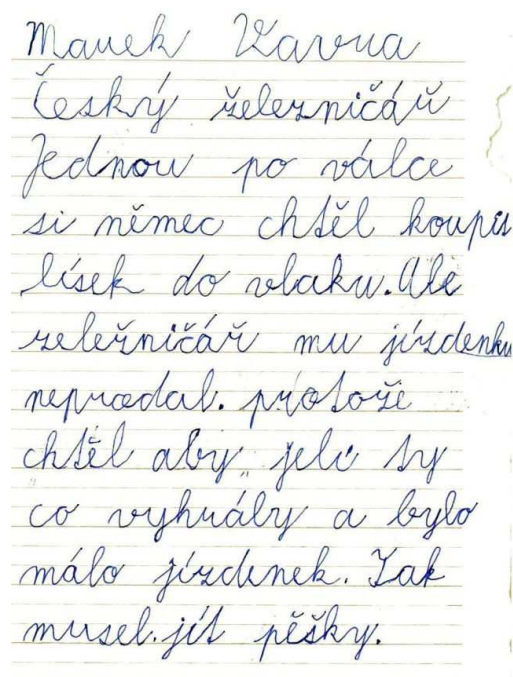 Marek Vavra
Český železničář
Jednou po válce
si němec chtěl koupit
lísek do vlaku. Ale
zeležničář mu jízdenku
neprodal. protože
chtěl aby jeli ty
co vyhrály a bylo
málo jízdenek. Tak
musel. jít pěšky.